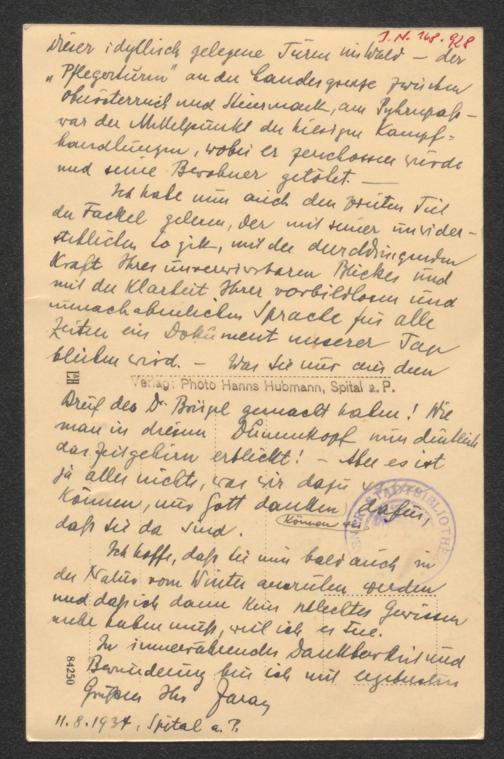 J.N. 168.928
Dieser idyllisch gelegene Turm im Wald – der
„Pflegerturm" an der Landesgrenze zwischen
Oberösterreich und Steiermark, am Pyhrnpaß –
war der Mittelpunkt der hiesigen Kampf=
handlungen, wobei er zerschossen wurde
und seine Bewohner getötet. —
Ich habe nun auch den zweiten Teil
der Fackel gelesen, der mit seiner unwider-
stehlichen Logik, mit der durchdringenden
Kraft Ihres unverwirrbaren Blickes und
mit der Klarheit Ihrer vorbildlosen und
unnachahmlichen Sprache für alle
Zeiten ein Dokument unserer Tage
bleiben wird. – Was Sie nur aus dem
Verlag: Photo Hanns Hubmann, Spital a. P.
Brief des Dr gemacht haben! Wie
man in diesem nun deutlich
das Zeitgehirn erblickt! – Aber es ist
ja alles nichts, was wir dafür
können, nur Gott danken dafür,
können wir
daß Sie da sind.
STADTBIBLIOTHE
Ich hoffe, daß Sie nun bald auch in
der Natur vom Winter ausruhen werden
und daß ich dann kein schlechtes Gewissen
mehr haben muß, weil ich es tue.
In immerwährender Dankbarkeit und
Bewunderung bin ich mit ergebensten
Grüßen Ihr Jaray
11.8.1934, Spital a. P.
84250